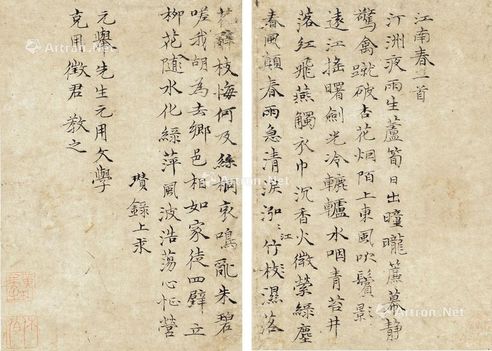 江南春三首
汀洲夜雨生蘆筍日出曈曨簾幕靜
驚禽蹴破杏花烟陌上東風吹鬢影
遠江搖曙劍光冷轆轤水咽青苔井
落紅飛燕觸衣巾沉香火微縈綠塵
春風顛春雨急清淚泓〻江竹枝濕落
花辭枝悔何及絲桐哀鳴亂朱碧
嗟我胡為去鄉邑相如家徒四壁立
柳花隨水化綠萍風波浩蕩心怔營
瓚錄上求
元舉先生元用文學
克用徵君 教之
Artron.Net
Artron.Net
Artron.Net
Artron.Net